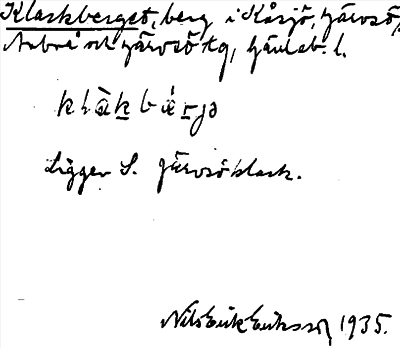 Klackberget, berg i Kåsjö, Järvsö,
Arbrå och Järvsö tg, Gävleb. l.
klàkbǽrjə
Ligger S. Järvsöklack.
Nils Erik Eriksson, 1935.